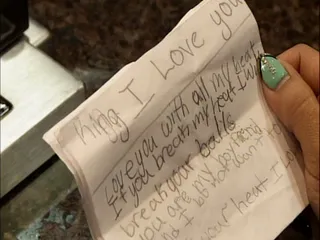 King I Love you
Love you with all my heart
If you break my heart I will
break your balls
you are my boyfriend
and I do not want to
your heart I